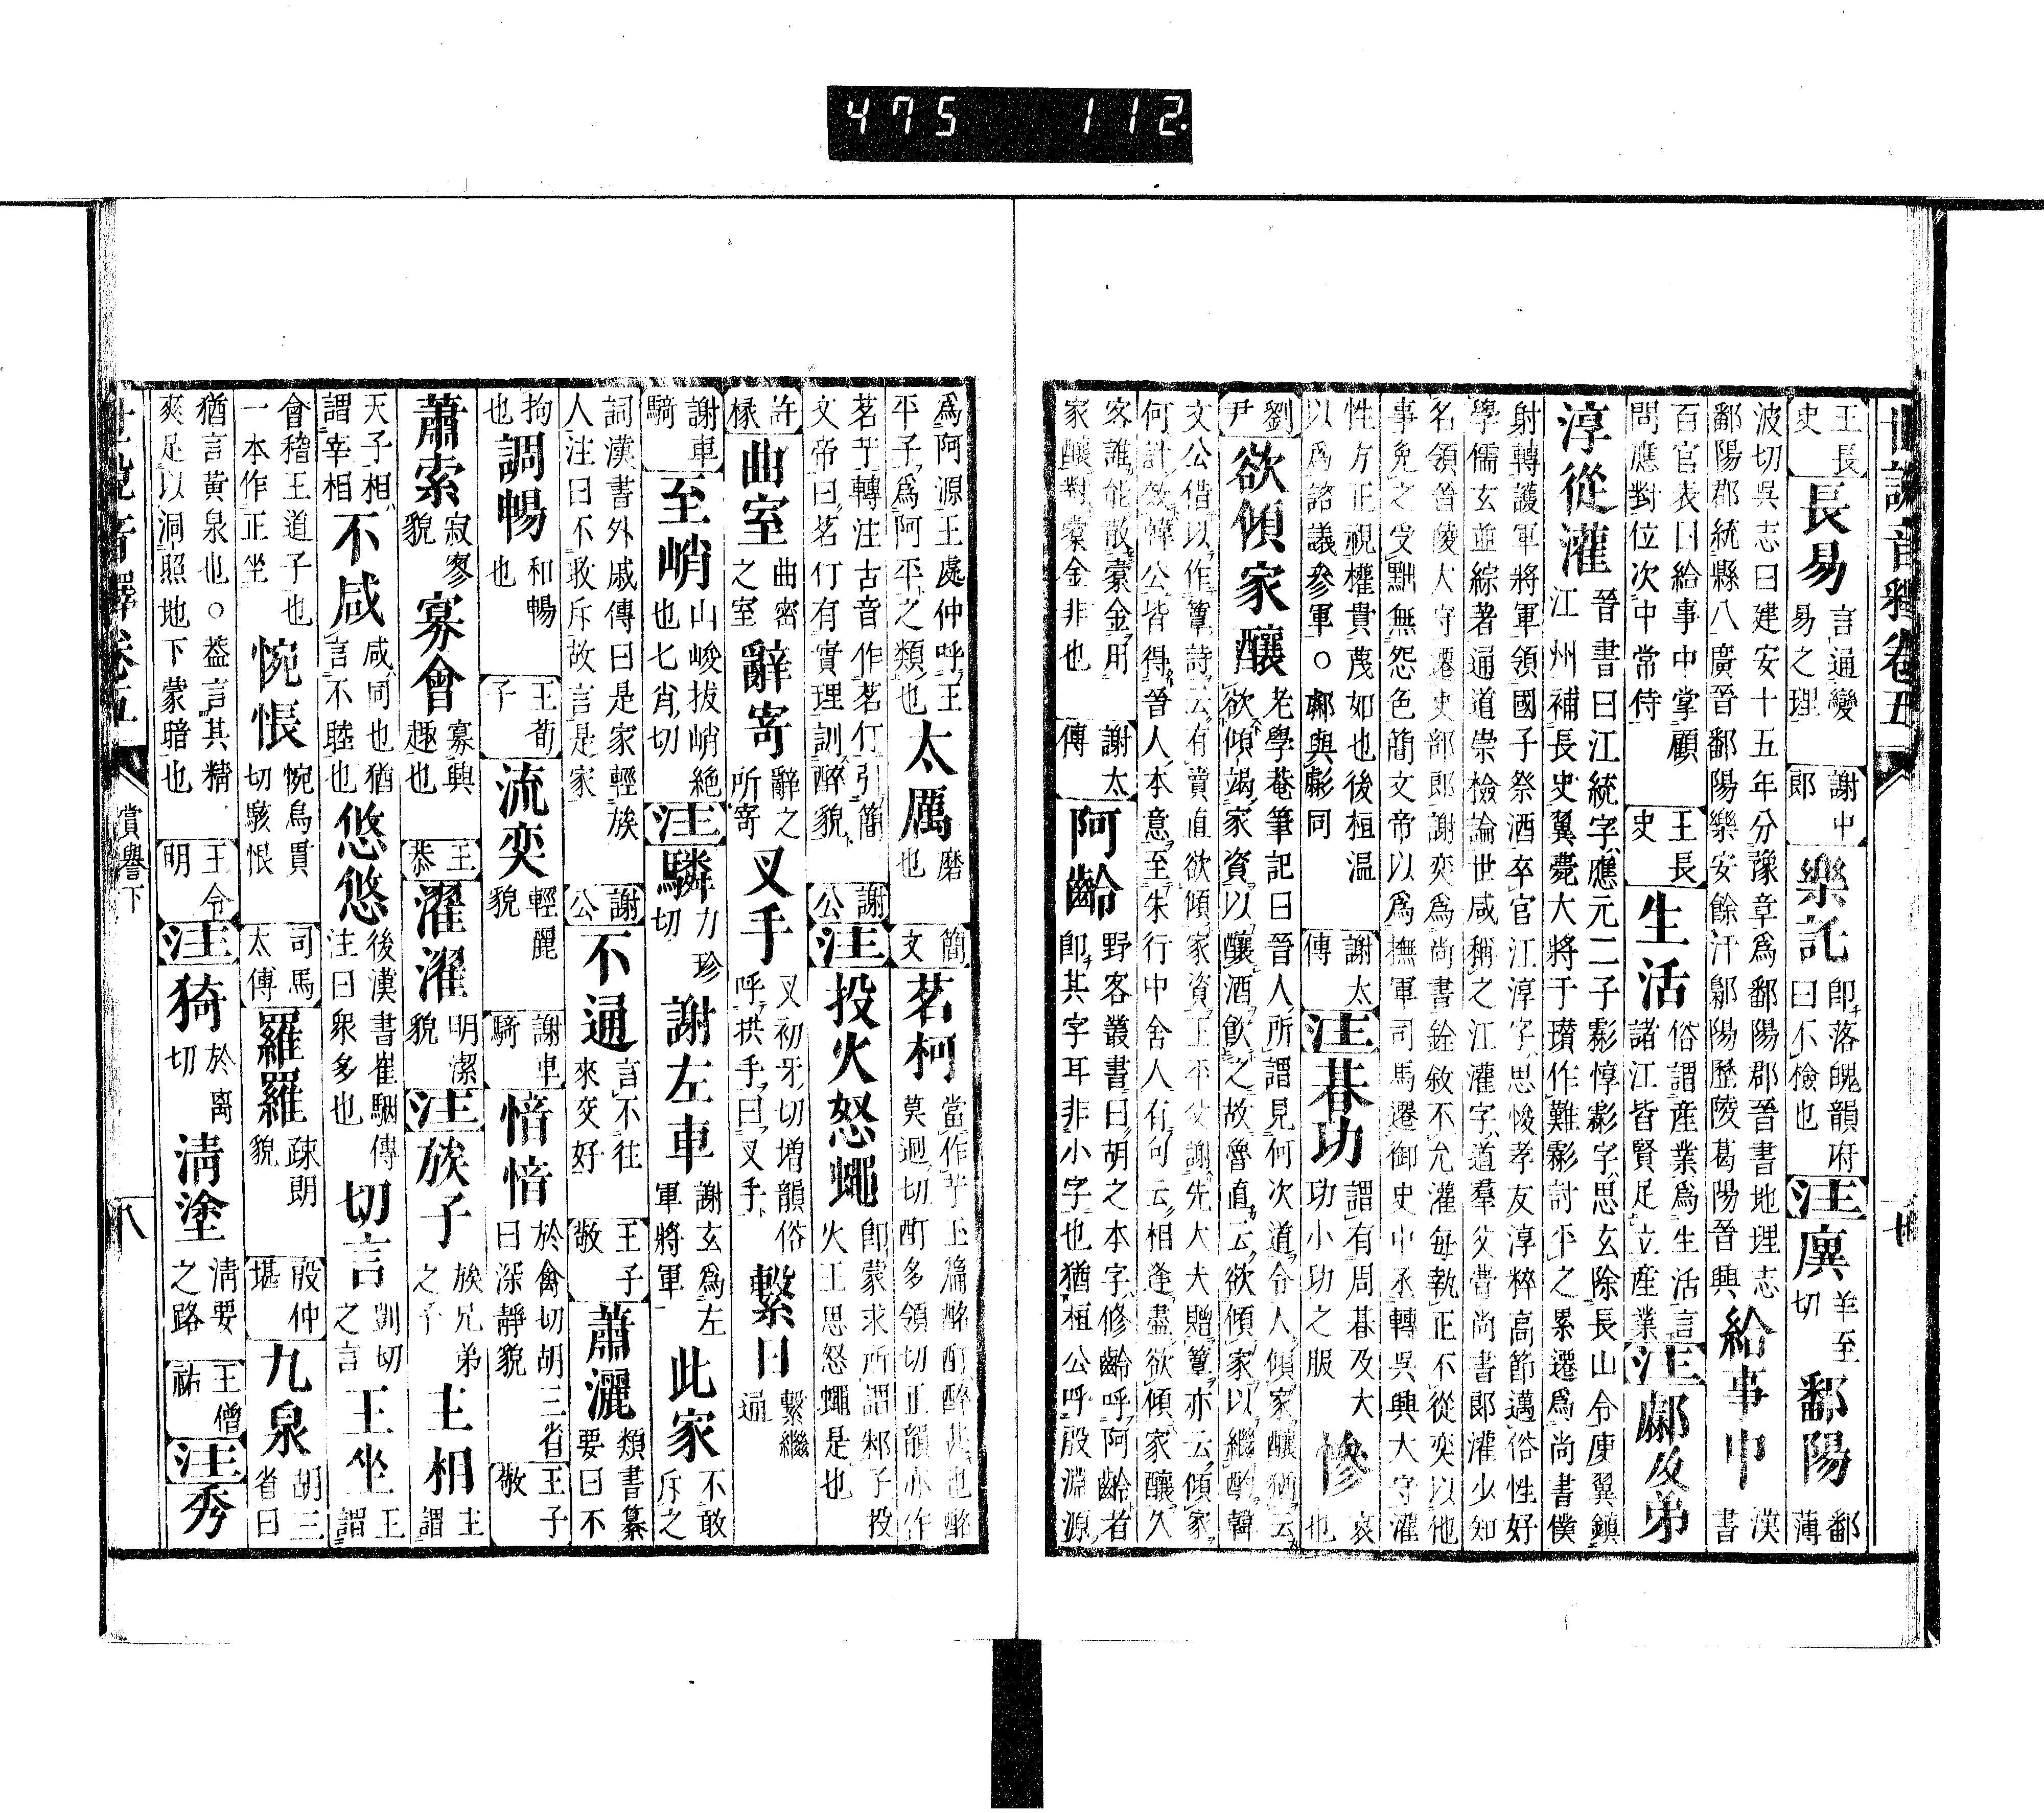 475 112.
世說音釋卷五
王長史 長易 言通變易之理 謝中郎 樂託 即落魄韻府曰不檢也 注 廙 羊至切 鄱陽 鄱薄
波切吳志曰建安十五年分豫章爲鄱陽郡晉書地理志鄱陽郡統縣八廣晉鄱陽樂安餘汗鄡陽歷陵葛陽晉興 給事中 漢書
百官表曰給事中掌顧問應對位次中常侍 王長史 生活 俗謂産業爲生活言諸江皆賢足立産業 注 鄰及弟
淳從灌 晉書曰江統字應元二子虨惇虨字思玄除長山令庾翼鎮江州補長史翼薨大將于瓚作難虨討平之累遷爲尚書僕
射轉護軍將軍領國子祭酒卒官江淳字思悛孝友淳粹高節邁俗性好學儒玄並綜著通道崇檢論世咸稱之江灌字道羣父瞢尚書郎灌少知
名領晉陵太守遷吏部郎謝奕爲尚書銓敘不允灌每執正不從奕以他事免之受黜無怨色簡文帝以爲撫軍司馬遷御史中丞轉吳興大守灌
性方正視權貴蔑如也後桓温以爲諮議參軍○鄰與虨同 謝太傅 注 朞功 謂有周朞及大功小功之服 慘 哀也
劉尹 欲傾家釀 老學菴筆記曰晉人所謂見何次道令人傾家釀猶云欲傾竭家資以釀酒飲之故魯直云欲傾家以繼酌韓
文公借以作簟詩云有賣直欲傾家資王平父謝先大夫贈簟亦云傾家何計效韓公皆得晉人本意至朱行中舍人有句云相逢盡欲傾家釀久
客誰能散橐金用家釀對橐金非也 謝太傅 阿齡 野客叢書曰胡之本字修齡呼阿齡者即其字耳非小字也猶桓公呼殷淵源
爲阿源王處仲呼王平子爲阿平之類也 太厲 磨也 簡文 茗柯 當作艼玉篇酩酊醉甚也酩莫迥切酊多領切正韻亦作
茗艼轉注古音作茗仃引簡文帝曰茗仃有實理訓醉貌 謝公 注 投火怒蠅 即蒙求所謂邾子投火王思怒蠅是也
許掾 曲室 曲密之室 辭寄 辭之所寄 叉手 叉初牙切増韻俗呼拱手曰叉手 繫日 繫繼逋
謝車騎 至峭 山峻拔峭絶也七肖切 注 驎 力珍切 謝左車 謝玄爲左軍將軍 此家 不敢斥之
詞漢書外戚傳曰是家輕族人注曰不敢斥故言是家 謝公 不通 言不往來交好 王子敬 蕭灑 類書纂要曰不
拘也 調暢 和暢也 王荀子 流奕 輕麗貌 謝車騎 愔愔 於禽切胡三省曰深靜貌 王子敬
蕭索 寂寥貌 寡會 寡興趣也 王恭 濯濯 明潔貌 注 族子 族兄弟之子 主相 主謂
天子相謂宰相 不咸 咸同也猶言不睦也 悠悠 後漢書崔駰傳注曰衆多也 切言 剴切之言 王坐 王謂
會稽王道子也一本作正坐 惋悵 惋烏貫切駭恨 司馬太傅 羅羅 疎朗貌 殷仲堪 九泉 胡三省曰
猶言黃泉也○蓋言其精爽足以洞照地下蒙暗也 王令明 注 猗 於离切 清塗 清要之路 王僧祐 注 秀
世說音釋卷五 賞譽下 八